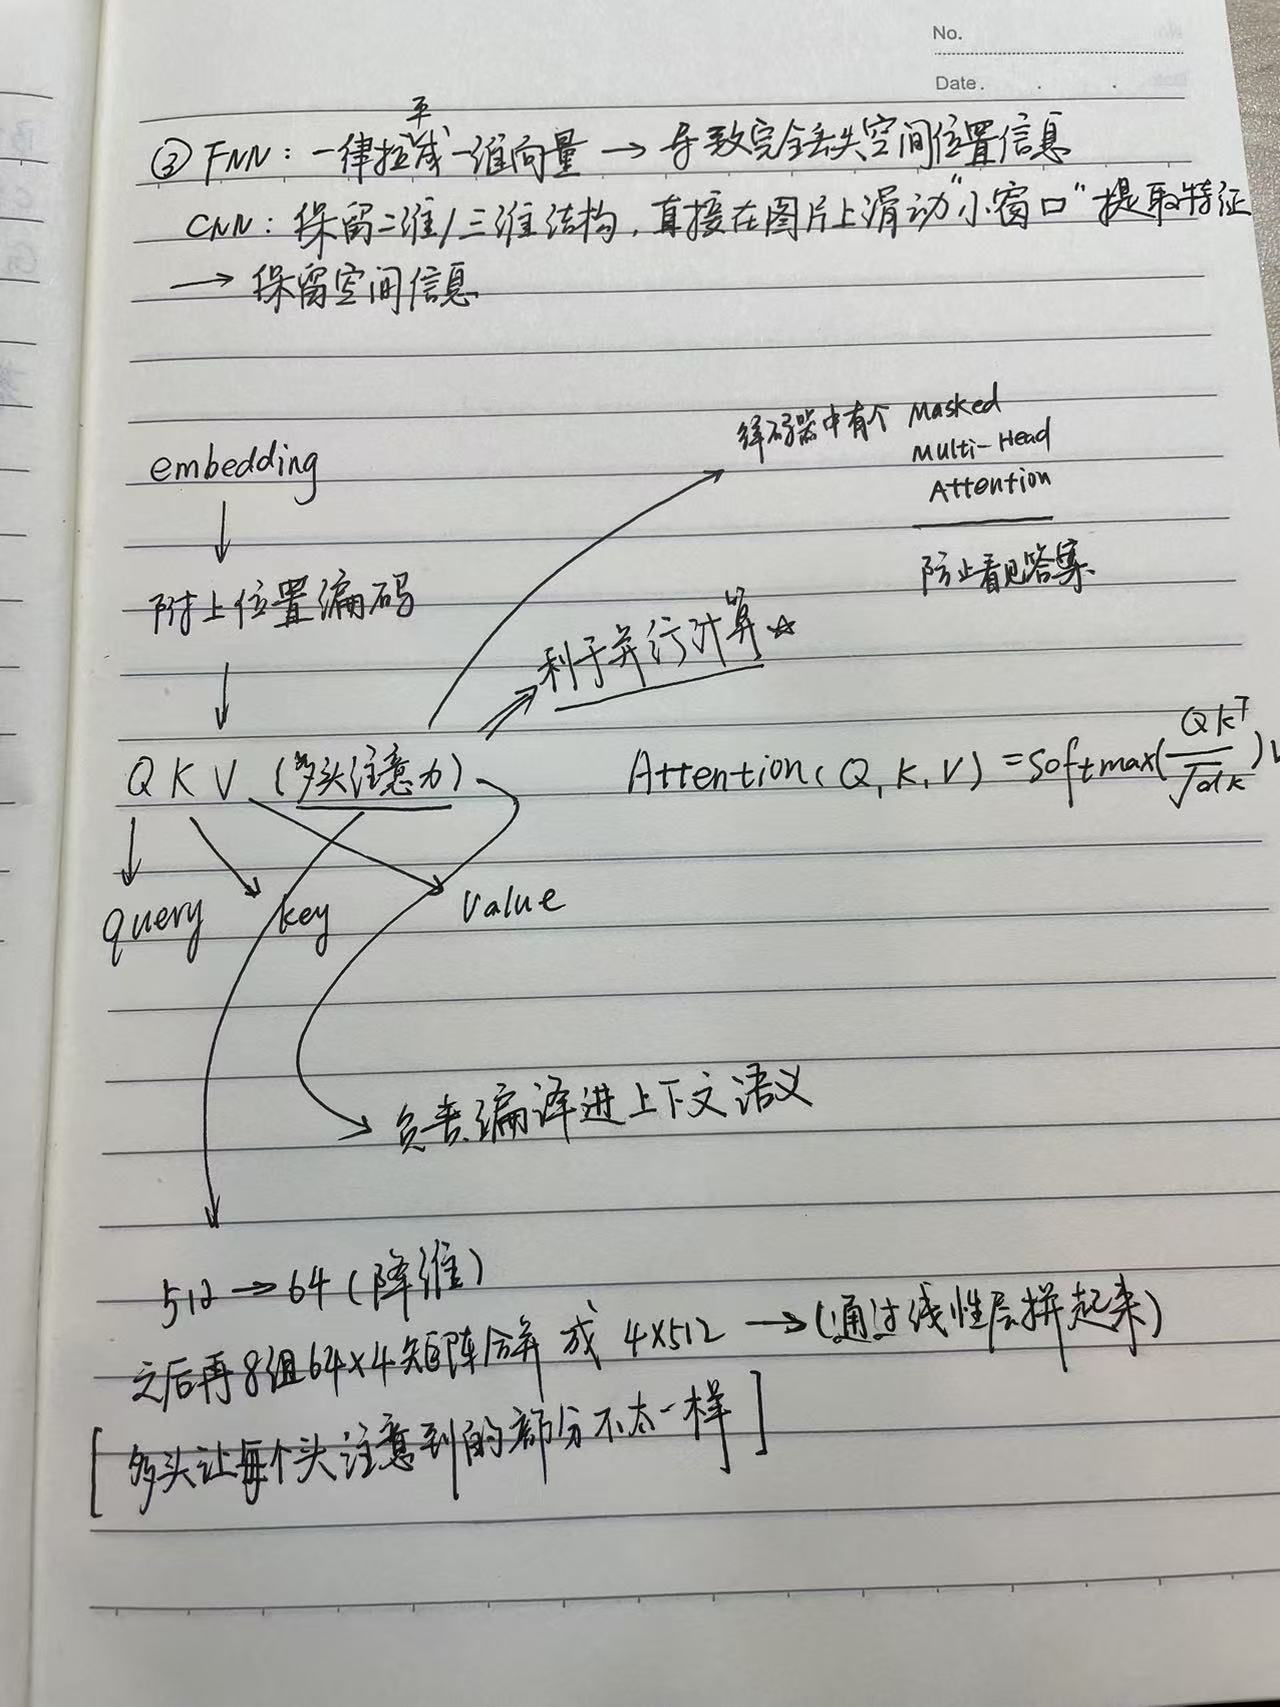 No.
Date.
③ FNN：一律拉平成一维向量 → 导致完全丢失空间位置信息
CNN：保留二维/三维结构，直接在图片上滑动"小窗口"提取特征
→ 保留空间信息
embedding
解码器中有个 Masked
Multi-Head
Attention
防止看见答案
附上位置编码
利于并行计算☆
Q K V (多头注意力)
Attention(Q,K,V) = Softmax(QK^T/√dk)V
query key value
负责编译进上下文语义
512 → 64 (降维)
之后再8组64×4矩阵合并 成 4×512 → (通过线性层拼起来)
[多头让每个头注意到的部分不太一样]